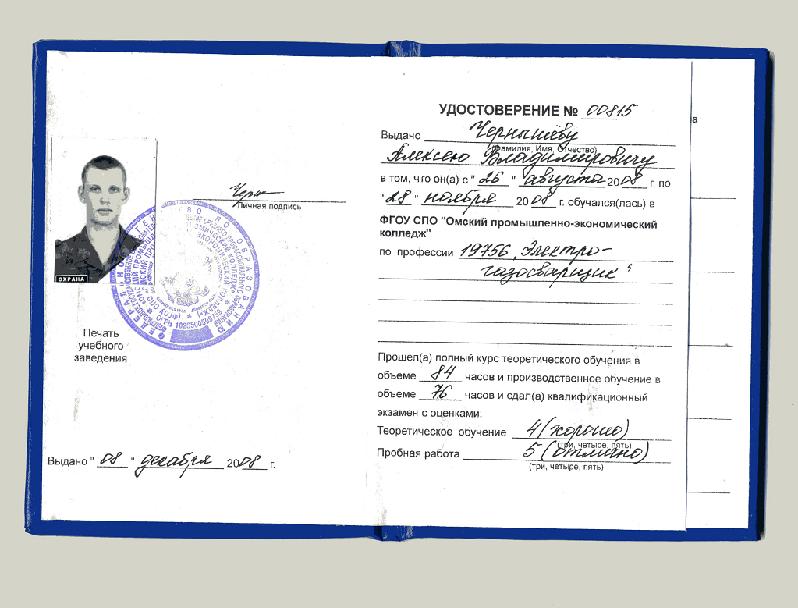 Черн
Личная подпись
ОХРАНА
Печать
учебного
заведения
Выдано " 08 " декабря 2008 г.
УДОСТОВЕРЕНИЕ № 00815
Выдано Чернышёву
(фамилия, Имя, Отчество)
Алексею Владимировичу
в том, что он(а) с " 26 " августа 2008 г. по
"28" ноября 2008 г. обучался(лась) в
ФГОУ СПО "Омский промышленно-экономический
колледж"
по профессии 19756 „Электро-
газосварщик"
Прошел(а) полный курс теоретического обучения в
объеме 84 часов и производственное обучение в
объеме 76 часов и сдал(а) квалификационный
экзамен с оценками:
Теоретическое обучение 4 (хорошо)
(три, четыре, пять)
Пробная работа 5 (отлично)
(три, четыре, пять)